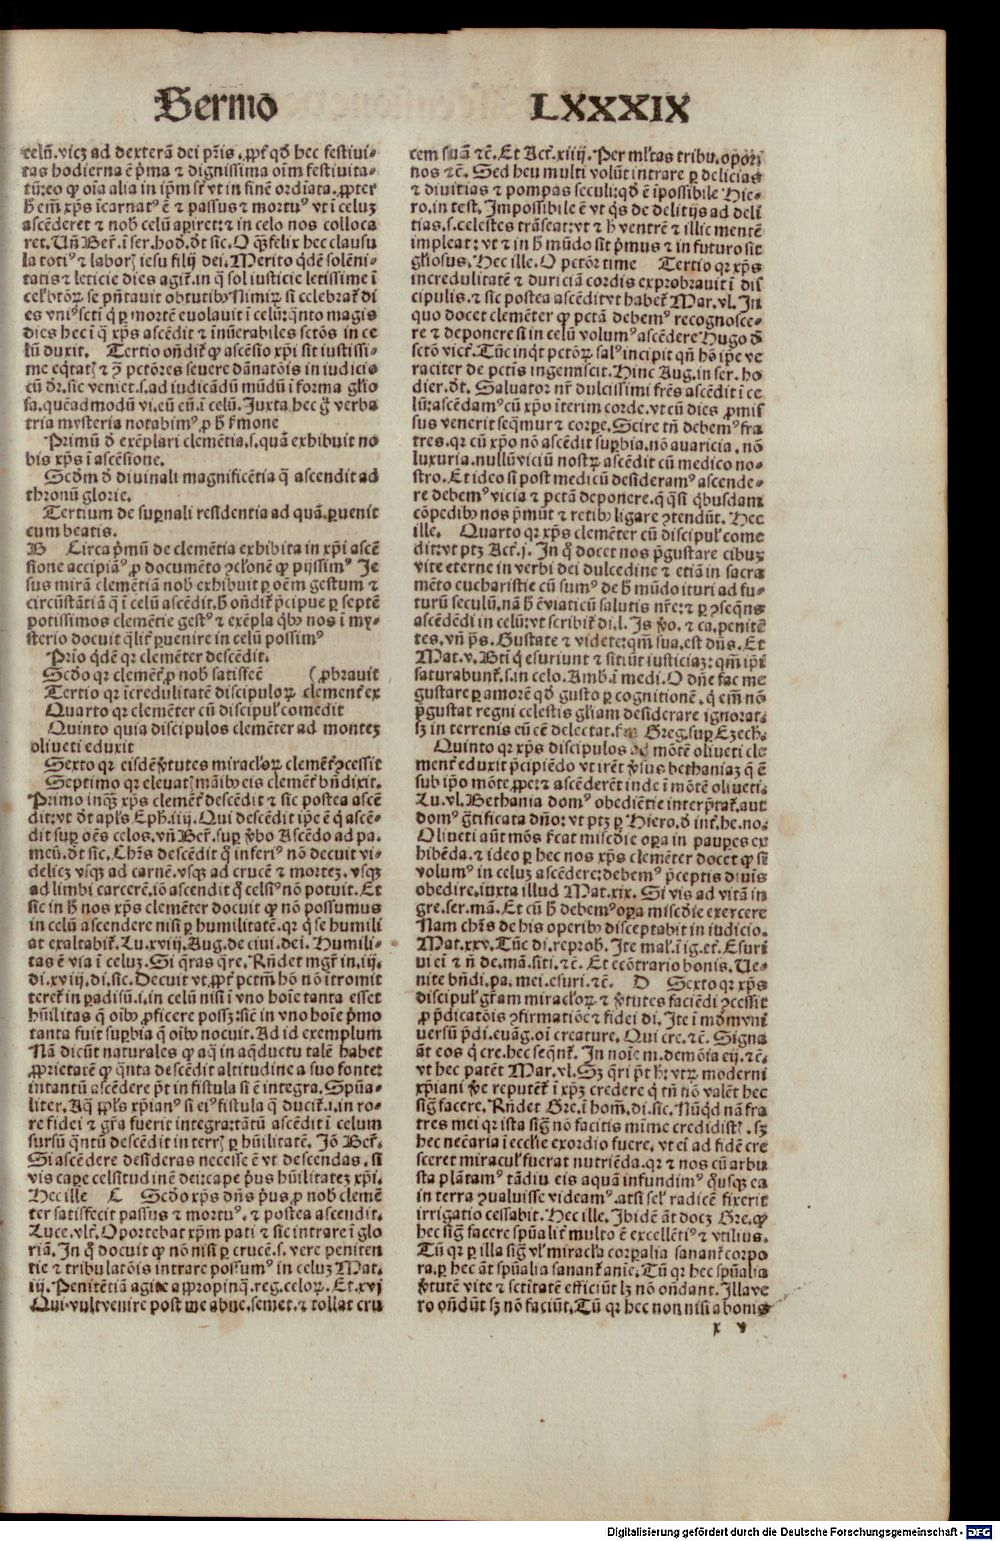 Sermo LXXXIX
celū.vicꝫ ad dexterā dei pr̄is.ꝓpt̄ qd̕ hec festiui-
tas hodierna ē p̄ma ⁊ dignissima oīm festiuita-
tū:eo ꝙ oīa alia in ip̄m sīt vt in finē ordīata.ꝓpter
h̄ em̄ xp̄s īcarnatꝰ ē ⁊ passus ⁊ mortuꝰ vt ī celuꝫ
ascēderet ⁊ nob̕ celū aꝑiret:⁊ in celo nos colloca
ret.Un̄ Ber̄.ī ser.hod̕.d̕t sic.O qꝫ felix hec clausu
la totiꝰ ⁊ labor̄ iesu filij dei.Merito qd̄e solēni-
tatis ⁊ leticie dies agit̄.in q̄ sol iusticie letissime ī
celes̄ se p̄ntauit obtutibꝰ Nimiꝝ si celebrat̄ di
es vniꝰ scti q̄ ꝑ mortē euolauit ī celū:q̄nto magis
dies hec ī q̄ xp̄s ascēdit ⁊ īnūerabiles sctōs in ce
lū duxit. Tertio on̄dit̄ ꝙ ascēsio xp̄i sit iustissi-
me eq̄tat̄ ⁊ ꝙ pctōres seuere dānatōis in iudicio
cū d̕r.sic veniet.s.ad iudicādū mūdū ī forma gl̕io
sa.quēadmodū vi.eū eū.ī celū.Juxta hec g̊ verba
tria mysteria notabimꝰ ꝓ h̄ s̄mone
Primū d̕ exēplari clemētia.s.quā exhibuit no
bis xp̄s ī ascēsione.
Scd̕m d̕ diuinali magnificētia q̄ ascendit ad
thronū glorie.
Tertium de suꝑnali residentia ad quā.ꝑuenit
cum beatis.
B Circa p̄mū de clemētia exhibita in xp̄i ascē
sione accipiāꝰ ꝓ documēto ꝯclonē ꝙ pijssimꝰ Je
sus mirā clemētiā nob̕ exhibuit ꝑ oēm gestum ⁊
circūstātiā q̄ ī celū ascēdit.h̄ on̄dit̄ p̄cipue ꝑ septē
potissimos clemētie gestꝰ ⁊ exēpla q̄bꝰ nos ī my-
sterio docuit q̄lit̄ ꝑuenire in celū possimꝰ
Prīo qd̄e qꝛ clemēter descēdit.
Scd̕o qꝛ clemēt̄ ꝓ nob̕ satisfēc (ꝓbrauit
Tertio qꝛ īcredulitatē discipuloꝝ clement̄ ex
Quarto qꝛ clemēter cū discipul̕ comedit
Quinto quia discipulos clemēter ad monteꝫ
oliueti eduxit
Sexto qꝛ eisdē v̄tutes miracl̕oꝝ clemēt̄ ꝯcessit
Septimo qꝛ eleuat̄ māibꝰ eis clemēt̄ bn̄dixit.
Primo inqꝫ xp̄s clemēt̄ descēdit ⁊ sic postea ascē
dit:vt d̕t apl̕s Eph.iiij.Qui descēdit ip̄e ē q̄ ascē-
dit suꝑ oēs celos.vn̄ Ber̄.suꝑ v̄bo Ascēdo ad pa.
meū.d̕t sic.Ch̄rs descēdit q̊ inferiꝰ nō decuit vi-
delicꝫ vsqꝫ ad carnē.vsqꝫ ad crucē ⁊ morteꝫ.vsqꝫ
ad limbi carcerē.iō ascendit q̊ celsiꝰ nō potuit.Et
sic in h̄ nos xp̄s clemēter docuit ꝙ nō possumus
in celū ascendere nisi ꝑ humilitatē.qꝛ q̄ se humili
at exaltabit̄.Lu.xviij.Aug.de ciui.dei.Humili-
tas ē via ī celuꝫ.Si q̄ras q̄re.Rn̄det mgr̄ in.iij.
di.xviij.di.sic.Decuit vt.ꝓpt̄ pctm̄ hō nō ītromit
teret̄ in ꝑadisū.i.in celū nisi ī vno hoīe tanta esset
hūilitas q̄ oībꝰ ꝓficere possꝫ:sic in vno hoīe p̄mo
tanta fuit suꝑbia q̄ oībꝰ nocuit.Ad id exemplum
Nā dicūt naturales ꝙ aq̄ in aq̄ductu talē habet
ꝓprietatē ꝙ q̄nta descēdit altitudine a suo fonte:
intantū ascēdere p̄t in fistula si ē integra.Spūa-
liter.Aq̄ ꝓpl̕s xp̄ianꝰ si eiꝰ fistula q̄ ducit̄.i.in ro-
re fidei ⁊ gr̄a fuerit integra:tātū ascēdit ī celum
sursū q̄ntū descēdit in terr̄ ꝑ hūilitatē. Jō Ber̄.
Si ascēdere desideras necesse ē vt descendas.si
vis caꝑe celsitudinē dei:cape p̄us hūilitateꝫ xp̄i.
Hec ille C Scd̕o xp̄s dn̄s p̄us ꝓ nob̕ clemē
ter satisfecit passus ⁊ mortuꝰ.⁊ postea ascendit.
Luce.vlt̄.Oportebat xp̄m pati ⁊ sic intrare ī glo
riā.In q̊ docuit ꝙ nō nisi ꝑ crucē.s.vere peniten
tie ⁊ tribulatōis intrare possumꝰ in celuꝫ Mat.
iij.Penitētiā agite appropinq̄.reg.celoꝝ.Et.xvj
Qui.vult venire post me abne.semet.⁊ tollat cru
cem suā ⁊c̄.Et Act̄.xiiij.Per ml̕tas tribu.oportꝫ
nos ⁊c̄. Sed heu multi volūt intrare ꝑ delicias
⁊ diuitias ⁊ pompas seculi:qd̕ ē īpossibile Hie-
ro.in test.Impossibile ē vt q̄s de delitijs ad deli
tias.s.celestes trāseat:vt ⁊ h̄ ventrē ⁊ illic mentē
impleat:vt ⁊ in h̄ mūdo sit p̄mus ⁊ in futuro sit
gl̕iosus.Hec ille.O pctōr time Tertio qꝛ xp̄s
incredulitatē ⁊ duriciā cordis exprobrauit ī dis
cipulis.⁊ sic postea ascēdit vt habet̄ Mar.vl.In
quo docet clemēter ꝙ pctā debemꝰ recognosce-
re ⁊ deponere si in celū volumꝰ ascēdere Hugo d̕
sctō vict̄.Tūc inq̄t pctōꝝ salꝰ incipit qn̄ hō ip̄e ve
raciter de pctis ingemiscit.Hinc Aug.in ser.ho
dier.d̕t. Saluator nr̄ dulcissimi fr̄es ascēdit ī ce
lū:ascēdamꝰ cū xp̄o īterim corde.vt cū dies ꝓmis
sus venerit seq̄mur ⁊ corꝑe.Scire tn̄ debemꝰ fra
tres.qꝛ cū xp̄o nō ascēdit suꝑbia.nō auaricia.nō
luxuria.nullū viciū nostꝝ ascēdit cū medico no-
stro.Et ideo si post medicū desideramꝰ ascende-
re debemꝰ vicia ⁊ pctā deponere.q̄ q̄si q̄busdam
cōpedibꝰ nos p̄mūt ⁊ retibꝰ ligare ꝯtendūt.Hec
ille. Quarto qꝛ xp̄s clemēter cū discipul̕ come
dit:vt ptꝫ Act̄.j. In q̊ docet nos p̄gustare cibuꝫ
vite eterne in verbi dei dulcedine ⁊ etiā in sacra
mēto eucharistie cū sumꝰ de h̄ mūdo ituri ad fu-
turū seculū.nā h̄ ē viaticū salutis nr̄e:⁊ ꝑ ꝯseq̄ns
ascēdēdi in celū:vt scribit̄ di.l. Is v̄o.⁊ ca.penitē
tes.vn̄ p̄s.Gustate ⁊ videte:qm̄ sua.est dn̄s.Et
Mat.v.Bt̄i q̄ esuriunt ⁊ sitiūt iusticiaꝫ:qm̄ ip̄i
saturabunt̄.s.in celo.Amb.ī medi.O dn̄e fac me
gustare ꝑ amorē qd̕ gusto ꝑ cognitionē.q̄ em̄ nō
p̄gustat regni celestis gl̕iam desiderare ignorat.
sꝫ in terrenis cū cē delectat. Greg.suꝑ Ezech.
Quinto qꝛ xp̄s discipulos ad mōtē oliueti cle
ment̄ eduxit p̄cipiēdo vt irēt v̄sus bethaniaꝫ q̄ ē
sub ip̄o mōte.ꝓꝑe:⁊ ascēderēt inde ī mōtē oliueti.
Lu.vl.Bethania domꝰ obediētie interp̄tat̄.aut
domꝰ g̊tificata dn̄o:vt ptꝫ ꝑ Hiero.d̕ int̄.he.no.
Oliueti aūt mōs s̄icat miscd̕ie oꝑa in pauꝑes ex
hibēda.⁊ ideo ꝑ hec nos xp̄s clemēter docet ꝙ si
volumꝰ in celuꝫ ascēdere:debemꝰ p̄ceptis diuis
obedire.iuxta illud Mat.xix. Si vis ad vitā in
gre.ser.mā.Et cū h̄ debemꝰ oꝑa miscd̕ie exercere
Nam ch̄rs de his operibꝰ disceptabit in iudicio.
Mat.xxv.Tūc di.reprob̕.Ite mal̕.ī ig.et̄.Esuri
ui eī ⁊ n̄ de.mā.siti.⁊c̄. Et ecōtrario bonis.Ue-
nite bn̄di.pa.mei.esuri.⁊c̄. D Sexto qꝛ xp̄s
discipul̕ gr̄am miracl̕oꝝ ⁊ v̄tutes faciēdi ꝯcessit
ꝓ p̄dicatōis ꝯfirmatiōe ⁊ fidei di.Ite ī mūdū vni
uersū p̄di.euāg.oī creature.Qui cre.⁊c̄.Signa
āt eos q̄ cre.hec seq̄nt̄.In noīe m.demōia eij.⁊c̄.
vt hec patēt Mar.vl.Sꝫ q̄ri p̄t h̄:vtꝝ moderni
xp̄iani v̄e reputēt̄ ī xp̄ꝫ credere q̄ tn̄ nō valēt hec
sig̊ facere.Rn̄det Gre.ī hom̄.di.sic.Nūqd̕ nā fra
tres mei qꝛ ista sig̊ nō facitis mime credidist̄.sꝫ
hec nec̄aria ī ecclie exordio fuere.vt eī ad fidē cre
sceret miracul̕ fuerat nutriēda.qꝛ ⁊ nos cū arbu
sta plātamꝰ tādiu eis aquā infundimꝰ q̄usqꝫ ea
in terra ꝯualuisse videamꝰ.at si sel̕ radicē fixerit
irrigatio cessabit.Hec ille.Ibidē āt docꝫ Gre.ꝙ
hec sig̊ facere spūalit̄ multo ē excellētiꝰ ⁊ vtilius.
Tū qꝛ ꝑ illa sig̊ vl̕ miracl̕a corꝑalia sanant̄ corpo
ra.ꝑ hec āt spūalia sanant̄ aīe.Tū qꝛ hec spūalia
v̄tutē vite ⁊ sctitatē efficiūt lꝫ nō on̄dant.Illa ve
ro on̄dūt sꝫ nō faciūt.Tū qꝛ hec non nisi a bonis
x v
Digitalisierung gefördert durch die Deutsche Forschungsgemeinschaft - DFG